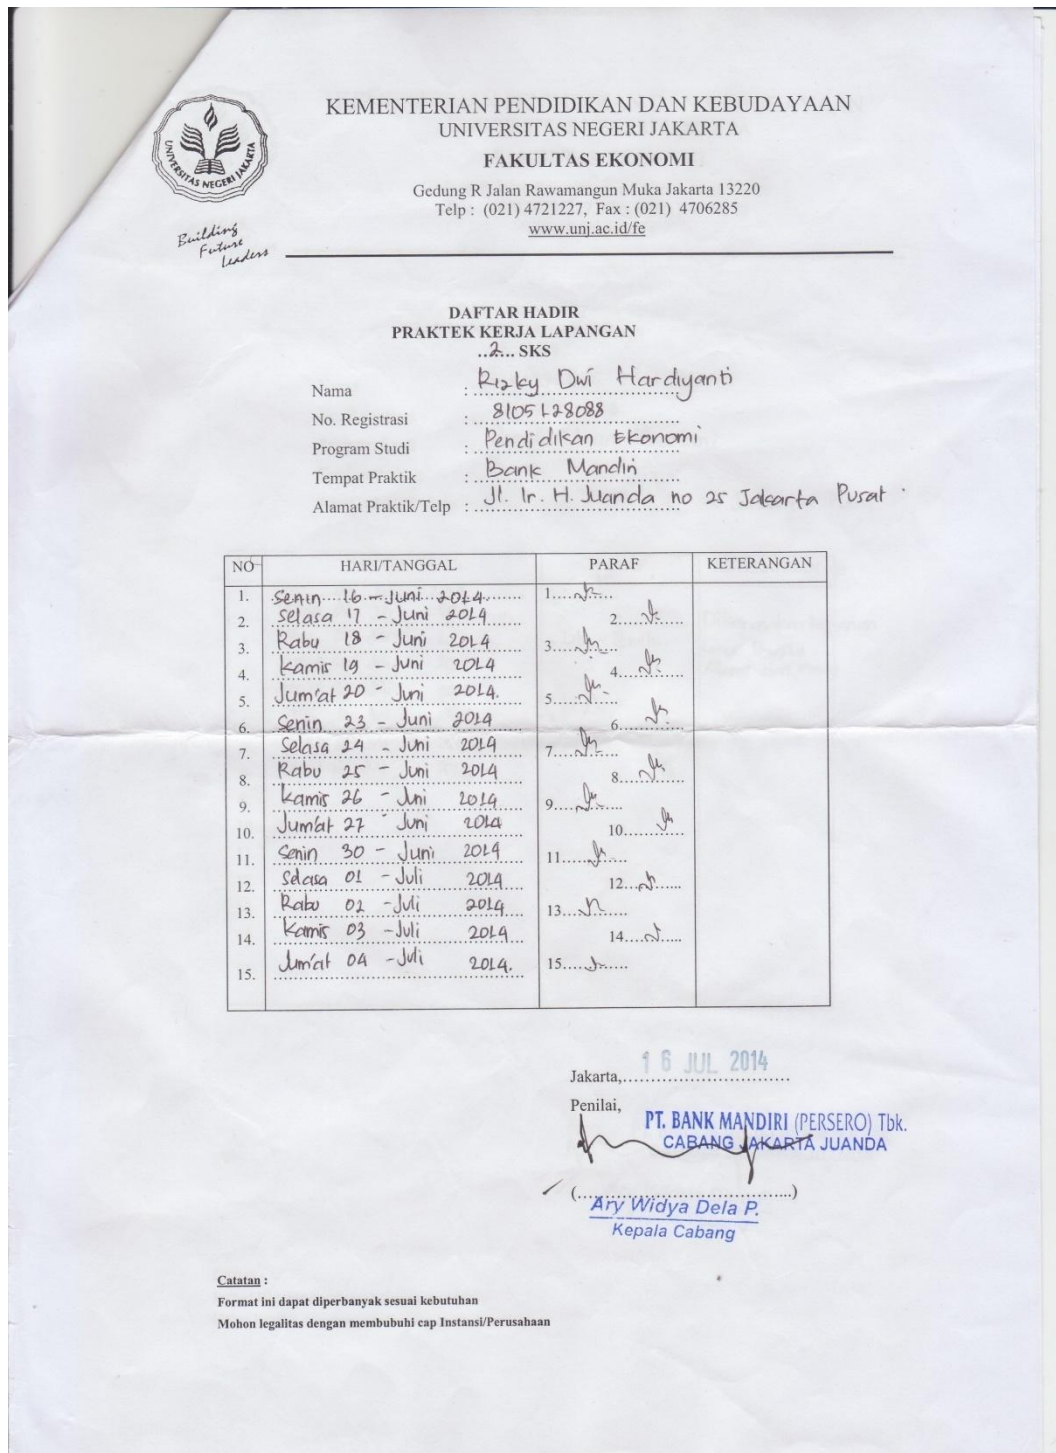 KEMENTERIAN PENDIDIKAN DAN KEBUDAYAAN
UNIVERSITAS NEGERI JAKARTA
FAKULTAS EKONOMI
Gedung R Jalan Rawamangun Muka Jakarta 13220
Telp : (021) 4721227, Fax : (021) 4706285
www.unj.ac.id/fe
UNIVERSITAS NEGERI JAKARTA
Building
Future
Leaders
DAFTAR HADIR
PRAKTEK KERJA LAPANGAN
..2... SKS
Nama : Rizky Dwi Hardiyanti
No. Registrasi : 8105128088
Program Studi : Pendidikan Ekonomi
Tempat Praktik : Bank Mandiri
Alamat Praktik/Telp : Jl. Ir. H. Juanda no 25 Jakarta Pusat.
NO HARI/TANGGAL PARAF KETERANGAN
1. Senin 16 - Juni 2014 1.
2. Selasa 17 - Juni 2014 2.
3. Rabu 18 - Juni 2014 3.
4. Kamis 19 - Juni 2014 4.
5. Jum'at 20 - Juni 2014. 5.
6. Senin 23 - Juni 2014 6.
7. Selasa 24 - Juni 2014 7.
8. Rabu 25 - Juni 2014 8.
9. Kamis 26 - Juni 2014 9.
10. Jum'at 27 - Juni 2014 10.
11. Senin 30 - Juni 2014 11.
12. Selasa 01 - Juli 2014 12.
13. Rabu 02 - Juli 2014 13.
14. Kamis 03 - Juli 2014 14.
15. Jum'at 04 - Juli 2014. 15.
Jakarta, 16 JUL 2014
Penilai,
PT. BANK MANDIRI (PERSERO) Tbk.
CABANG JAKARTA JUANDA
(........................................)
Ary Widya Dela P.
Kepala Cabang
Catatan :
Format ini dapat diperbanyak sesuai kebutuhan
Mohon legalitas dengan membubuhi cap Instansi/Perusahaan